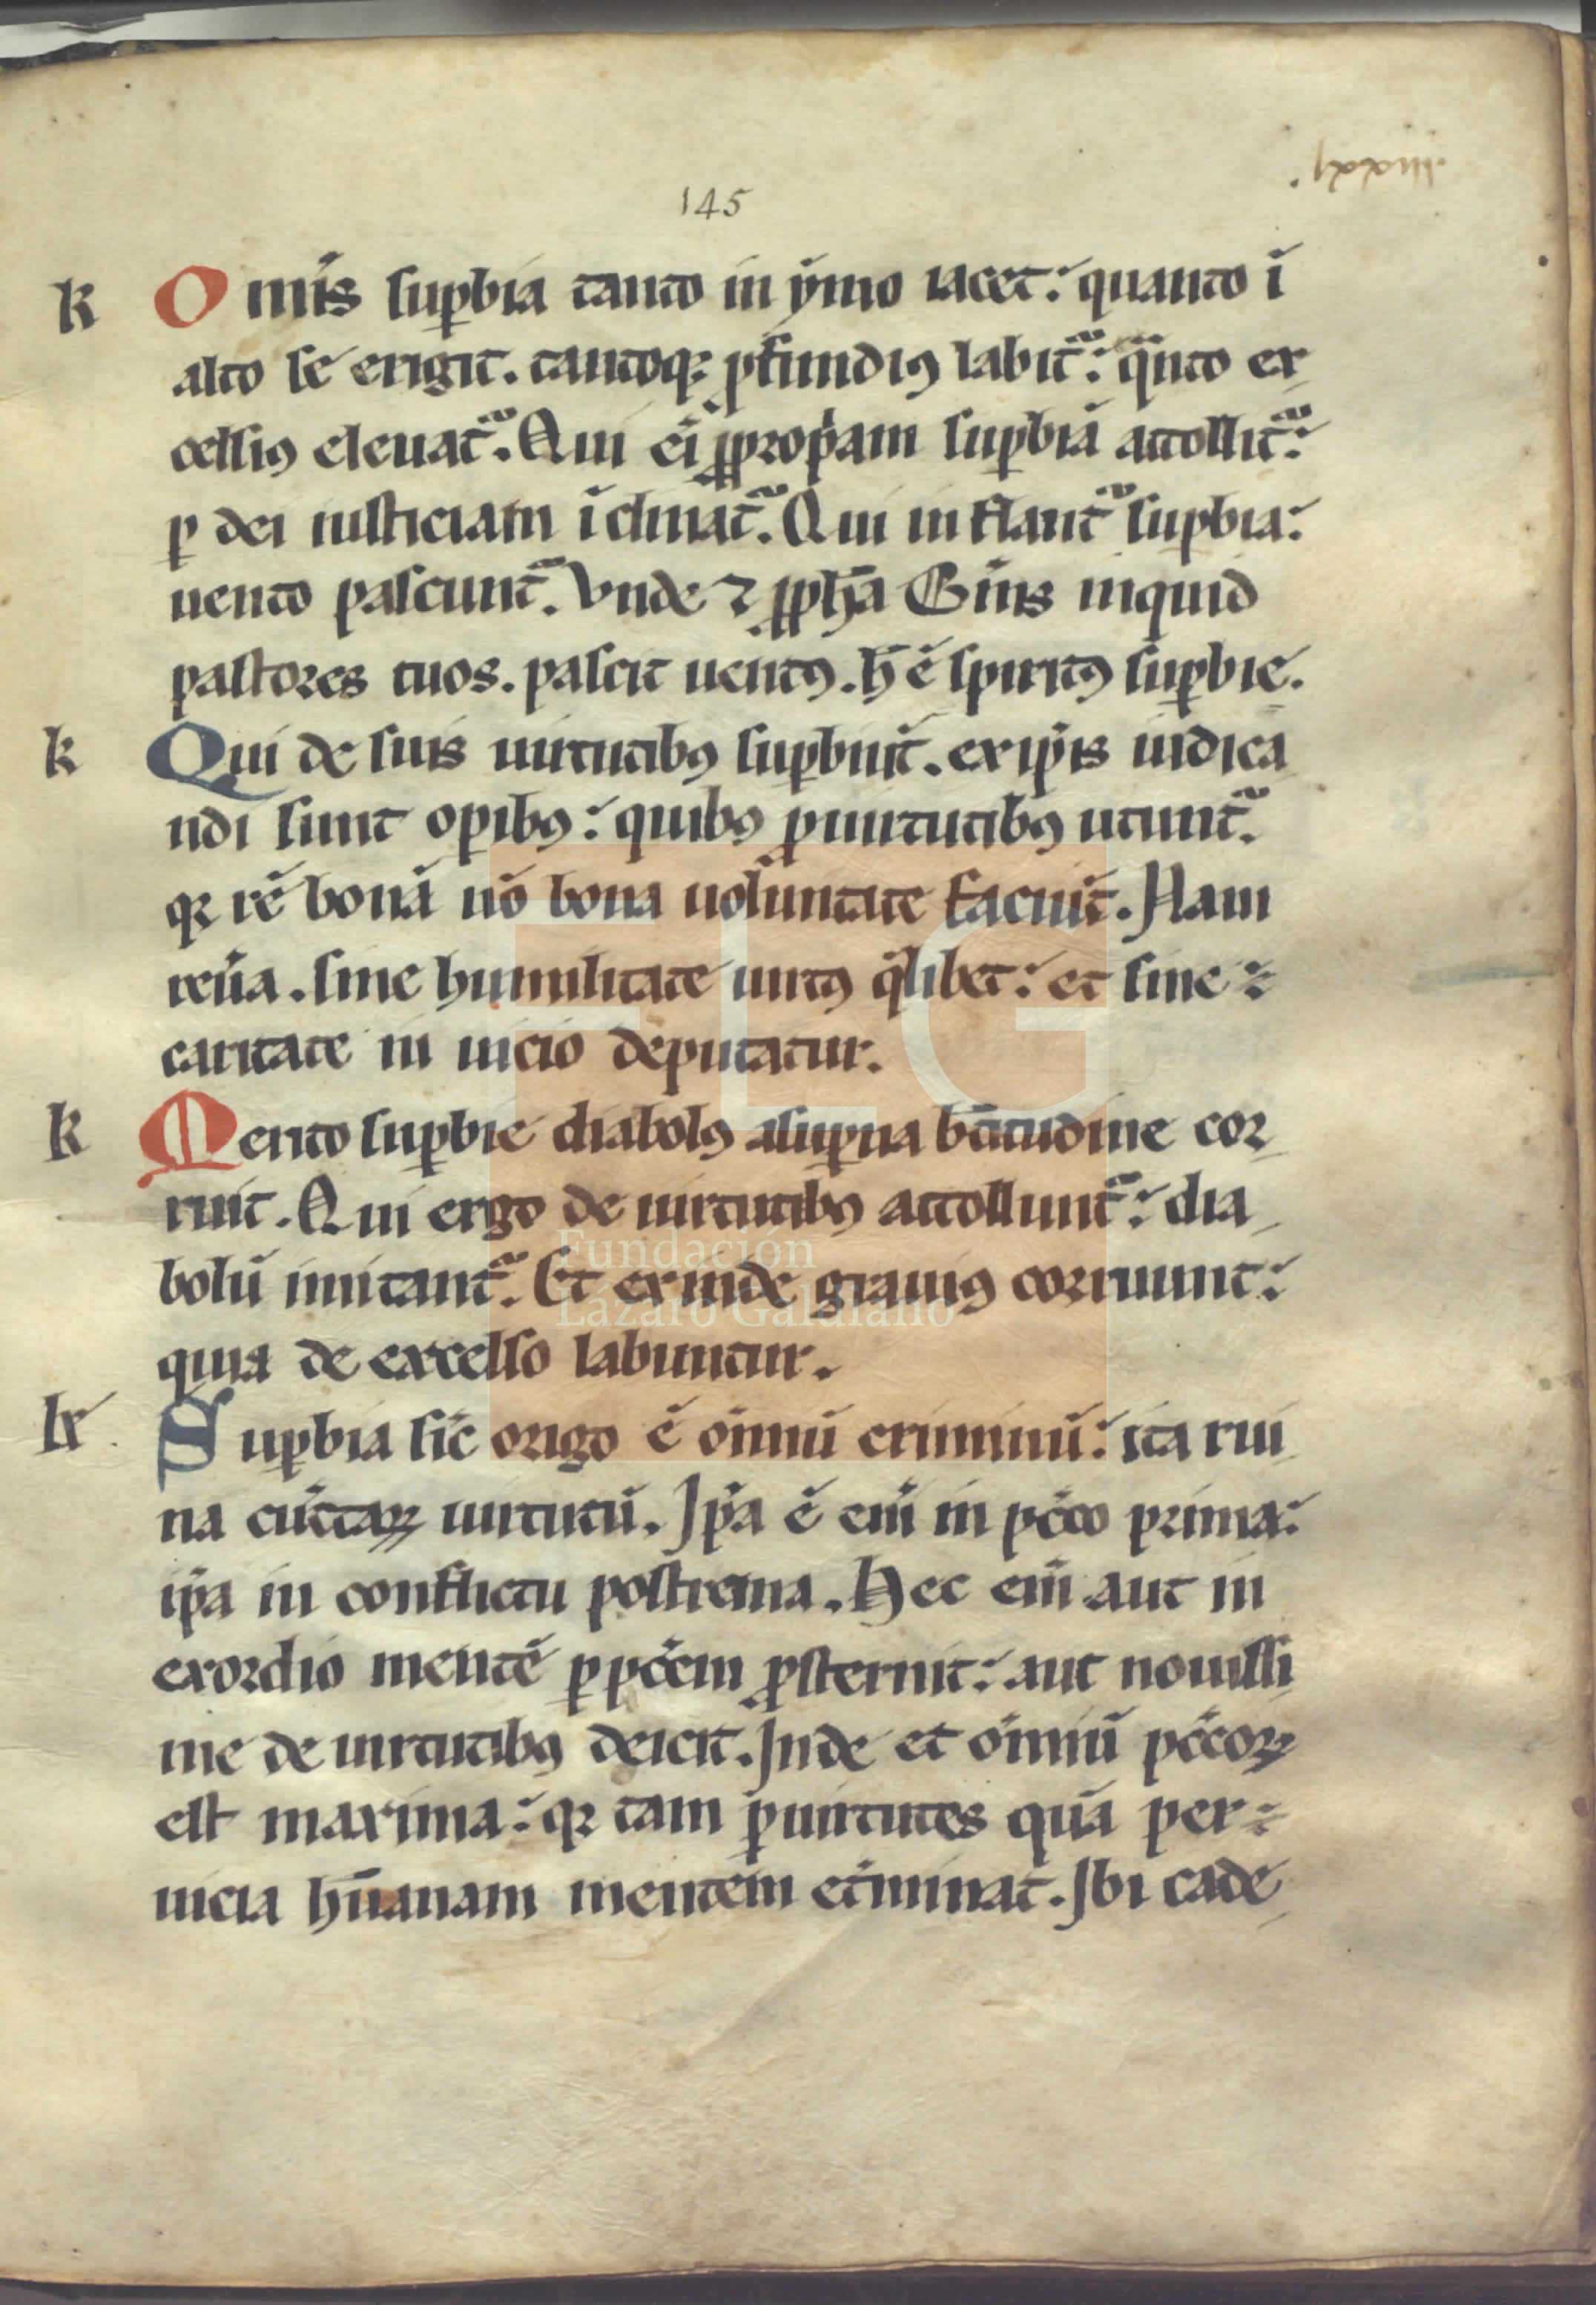 145
k Om̅s suꝑbia tanto in ẏmo iacet: quanto ı̅
alto se erigit. tantoqꝫ ꝓfundiꝰ labit᷑: qͣnto ex
cellsiꝰ eleuat᷑. Qui ei̅ ꝓpropͥam suꝑbia̅ attollit᷑:
ꝑ dei iusticiam ı̅clinat᷑. Qui inflant᷑ suꝑbia:
uento pascunt᷑. Vnde ⁊ ꝓph̅a Om̅s inquid
pastores tuos. pascit uentꝰ. h̅ e̅ spiritꝰ suꝑbie.
k Qui de suis uirtutibꝰ suꝑbiu̅t. ex ip̅is iudica
ndi sunt oꝑibꝰ: quibꝰ ꝓ uirtutibꝰ utunt᷑.
qꝛ re̅ bona̅ no̅ bona uoluntate faciu̅t. Nam
reu̅a. sine humilitate uirtꝰ qͥlibet: et sine
caritate in uicio deputatur.
k Merito suꝑbie diabolꝰ a suꝑna bt̅itudine cor
ruit. Qui ergo de uirtutibꝰ attollunt᷑: dia
bolu̅ imitant᷑. Et exinde grauiꝰ corruunt:
quia de excelso labuntur.
k Suꝑbia sic̅ origo e̅ om̅iu̅ criminu̅: ita rui
na cu̅ctaꝝ uirtutu̅. Ip̅a e̅ eni̅ in pc̅co prima:
ip̅a in conflictu postrema. Hec eni̅ aut in
exordio mente̅ ꝑ pc̅cm ꝓsternit: aut nouissi
me de uirtutibꝰ deicit. Inde et om̅iu̅ pc̅coꝝ
est maxima: qꝛ tam ꝑ uirtutes qua̅ per
uicia hu̅anam mentem ext̅minat. Ibi cade
FLG
Fundación
Lázaro Galdiano